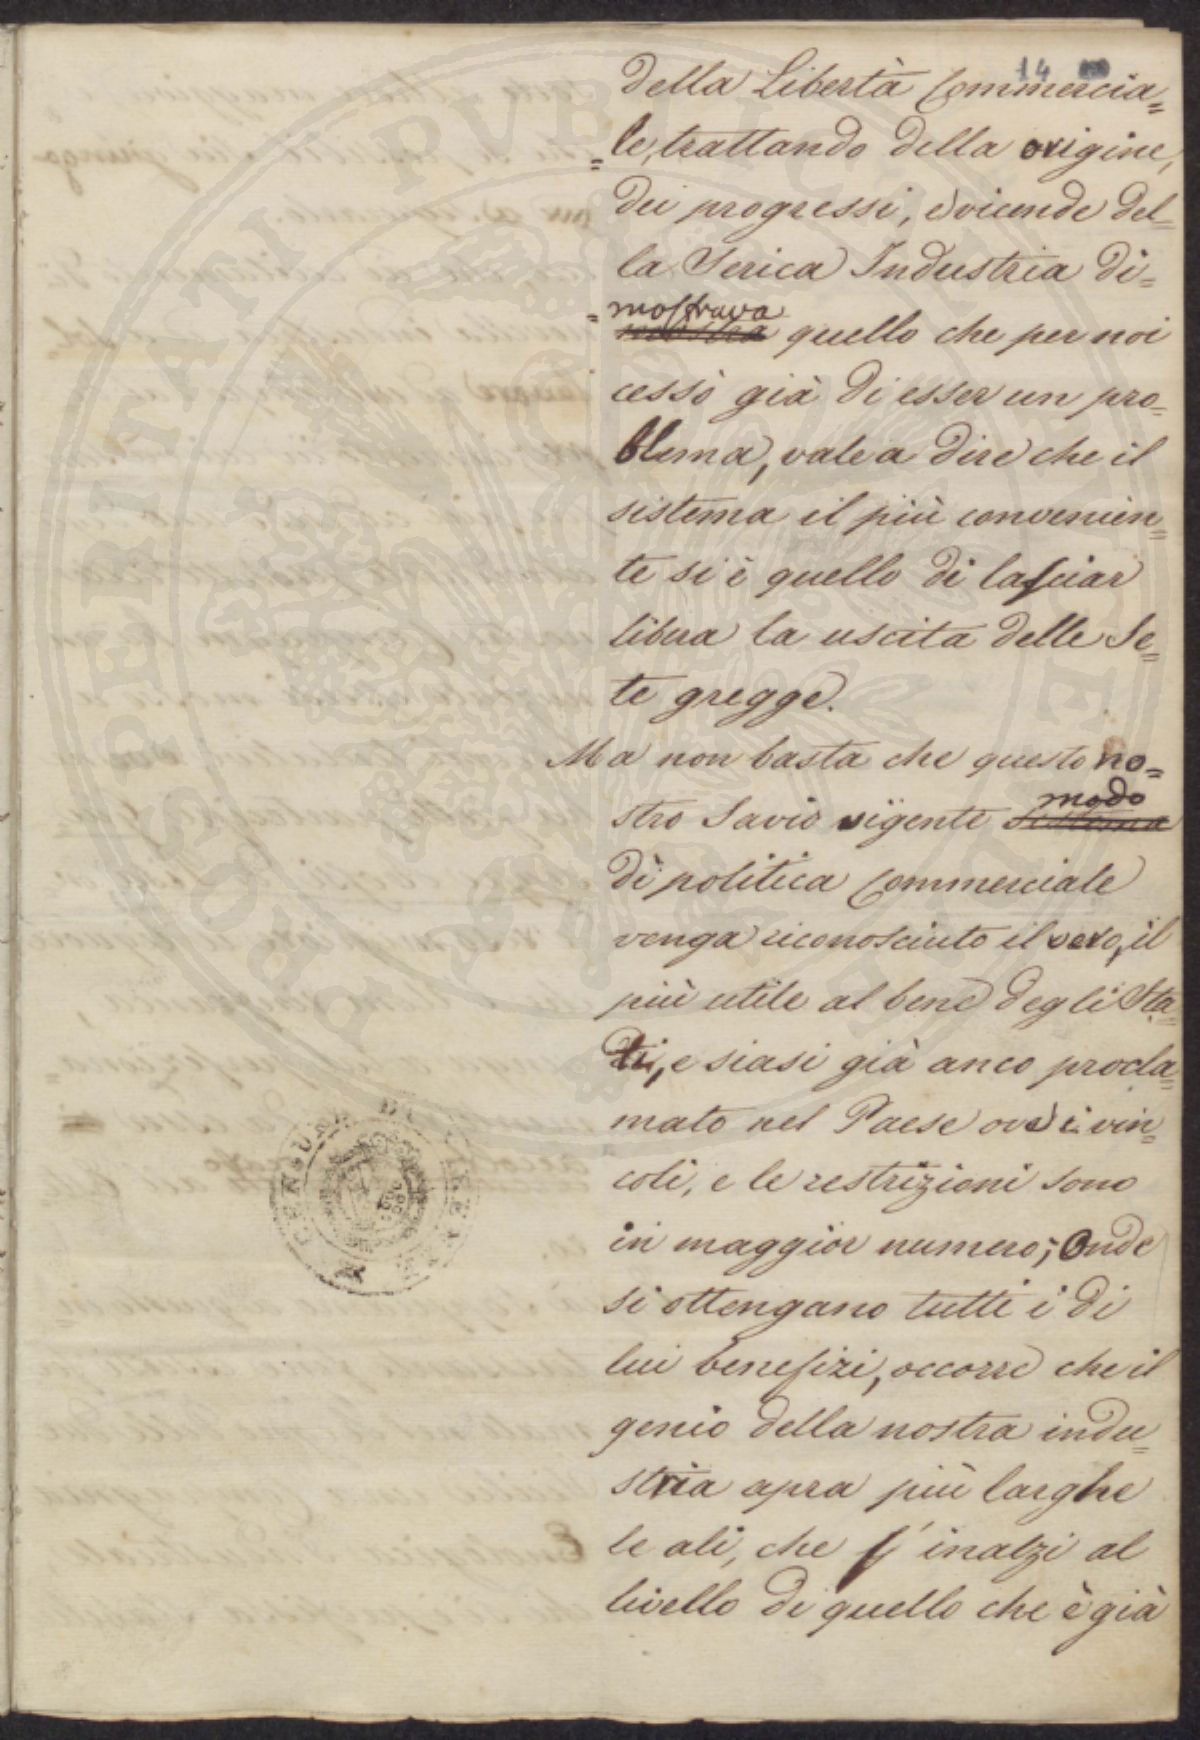 14
della Libertà Commercia=
=le, trattando della origine,
dei progressi, e vicende del=
la Serica Industria di=
=mostrava
quello che per noi
cessò già di esser un pro=
blema, vale a dire che il
sistema il più convenien=
te si è quello di lasciar
libera la uscita delle Se=
te gregge.
Ma non basta che questo no=
modo
stro Savio vigente sistema
di politica Commerciale
venga riconosciuto il vero, il
più utile al bene degli Sta=
ti, e siasi già anco procla=
mato nel Paese ove i vin=
coli, e le restrizioni sono
in maggior numero; Onde
si ottengano tutti i di
lui benefizi, occorre che il
genio della nostra indu=
stria apra più larghe
le ali, che s' inalzi al
livello di quello che è già
PROSPERITATI PUBLICAE
CENSURA